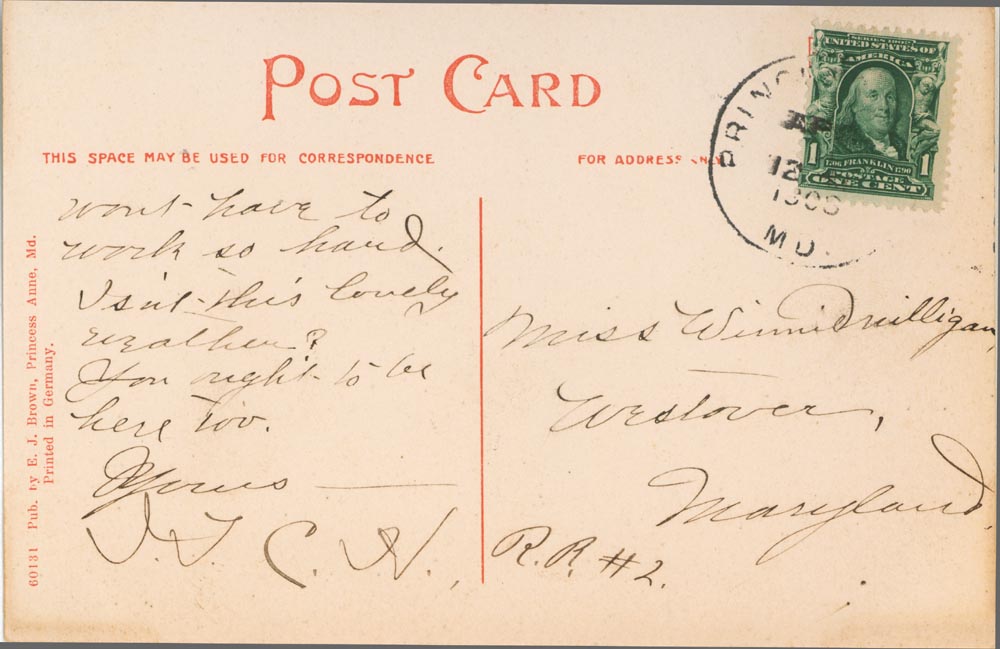 POST CARD
THIS SPACE MAY BE USED FOR CORRESPONDENCE
FOR ADDRESS ONLY
SERIES 1902
UNITED STATES OF
AMERICA
1 1706 FRANKLIN 1790 1
POSTAGE
ONE CENT
PRINC
12
MD.
wont have to
work so hard.
Isn't this lovely
weather?
You ought to be
here too.
Yours —
C. H.,
Miss Winnie Milligan,
Westover,
Maryland,
R.R. #2.
60131 Pub. by E. J. Brown, Princess Anne, Md.
Printed in Germany.